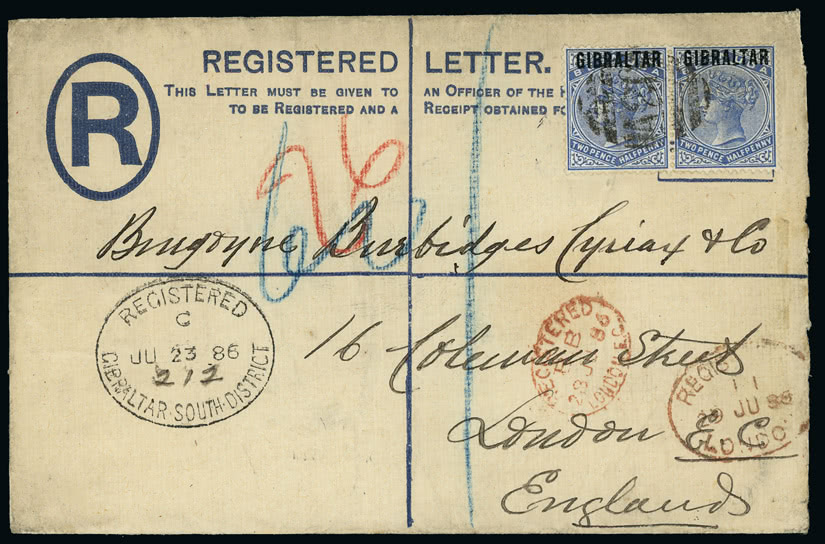 REGISTERED LETTER.
THIS LETTER MUST BE GIVEN TO AN OFFICER OF THE
TO BE REGISTERED AND A RECEIPT OBTAINED
R
GIBRALTAR
TWO PENCE HALFPENNY
GIBRALTAR
TWO PENCE HALFPENNY
26
Burgoyne Burbidges Cyriax & Co
16 Coleman Street
London E.C.
England
REGISTERED
G
JU 23 86
212
GIBRALTAR·SOUTH·DISTRICT
REGISTERED
B
86
LONDON E.C.
11
JU 86